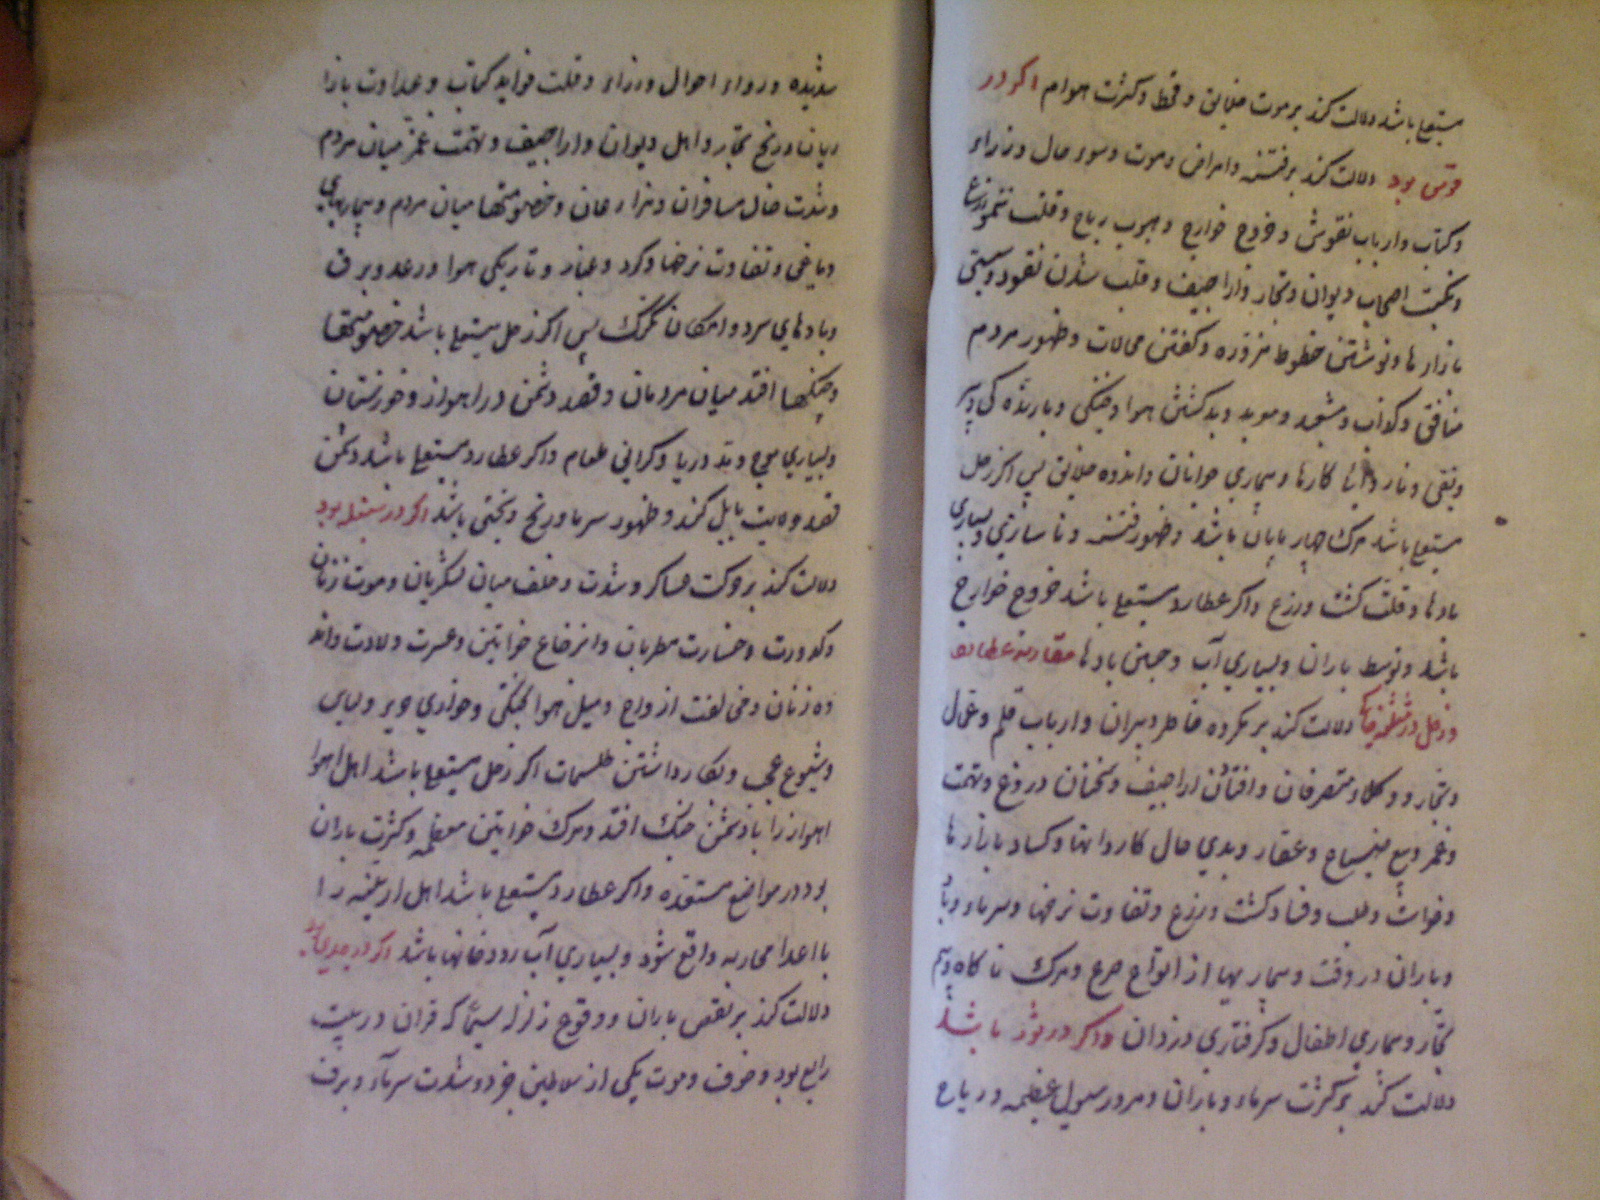 مستعلی باشد دلالت کند بر موت خلایق و قحط و کثرت هوام اکر در
قوس بود دلالت کند بر فتنه و امراض و موت و سوء حال وزراء
و کتاب و ارباب نقوش و خروج خوارج و هبوب ریاح و قلت نمو زرع
و نکبت اصحاب دیوان و تجار و اراجیف و قلب شدن نقود و سستی
بازارها و نوشتن خطوط مزوره و کفتن محالات و ظهور مردم
منافق و کذاب و مشعبد و موبد و بد کشتن هوا و خنکی و بارندکی
و نقی و ناروائی کارها و بیماری جوانان و اندوه خلایق پس اکر زحل
مستعلی باشد مرک چهارپایان باشد و ظهور فتنه و ناسازی و بسیاری
بادها و قلت کشت و زرع و اکر عطارد مستعلی باشد خروج خوارج
باشد و توسط باران و بسیاری آب و جستن بادها مقارنه عطارد
و زحل در مثلثه خاکی دلالت کند بر مکروه خاطر دبیران و ارباب قلم و عمال
و تجار و وکلا و متصرفان و افتادن اراجیف و سخنان دروغ و تهمت
و غمز و بیع ضیاع و عقار و بدی حال کاروانها و کساد بازارها
و خواش و طلب و فساد کشت و زرع و تفاوت نرخها و سرما و
و باران در وقت و بیماریها از انواع صرع و مرک ناکاه و بیم
تجار و بیماری اطفال و کرفتاری دزدان و اکر در ثور باشد
دلالت کند بر کثرت سرما و باران و مرور سیول عظیمه و ریاح
شدیده و رواء احوال وزراء و قلت فواید کتاب و عداوت بازا
ریان و رنج تجار و اهل دیوان و اراجیف و تهمت غمز میان مردم
و شدت حال مسافران و مزارعان و خصومتها میان مردم و بیماریهای
دماغی و تفاوت نرخها و کرد و غبار و تاریکی هوا و رعد و برق
و بادهای سرد و امکان تکرک پس اکر زحل مستعلی باشد خصومتها
و جنکها افتد میان مردمان و قصد دشمن در اهواز و خوزستان
و بسیاری موج و مد دریا و کرانی طعام و اکر عطارد مستعلی باشد دشمن
قصد ولایت بابل کند و ظهور سرما و رنج و سختی باشد اکر در سنبله بود
دلالت کند بر حرکت عساکر و شدت و خلف میان لشکریان و موت زنان
و کدورت و خسارت مطربان و ارتفاع خواتین و عسرت ولادت و اند
وه زنان و مخالفت ازواج و میل هوا بخنکی و خواری و لباس
و شیوع و بکار داشتن طلسمات اکر زحل مستعلی باشد اهل اهوا
اهواز را با دشمن جنک افتد و مرک خواتین معظمه و کثرت باران
بود در مواضع مستعده و اکر عطارد مستعلی باشد اهل ارمنیه را
با اعدا محاربه واقع شود و بسیاری آب رودخانها باشد اکر در جدی بود
دلالت کند بر نقص باران و وقوع زلزله سیما که قران در بیت
رابع بود و خوف و موت یکی از سلاطین خرد و شدت سرما و برف